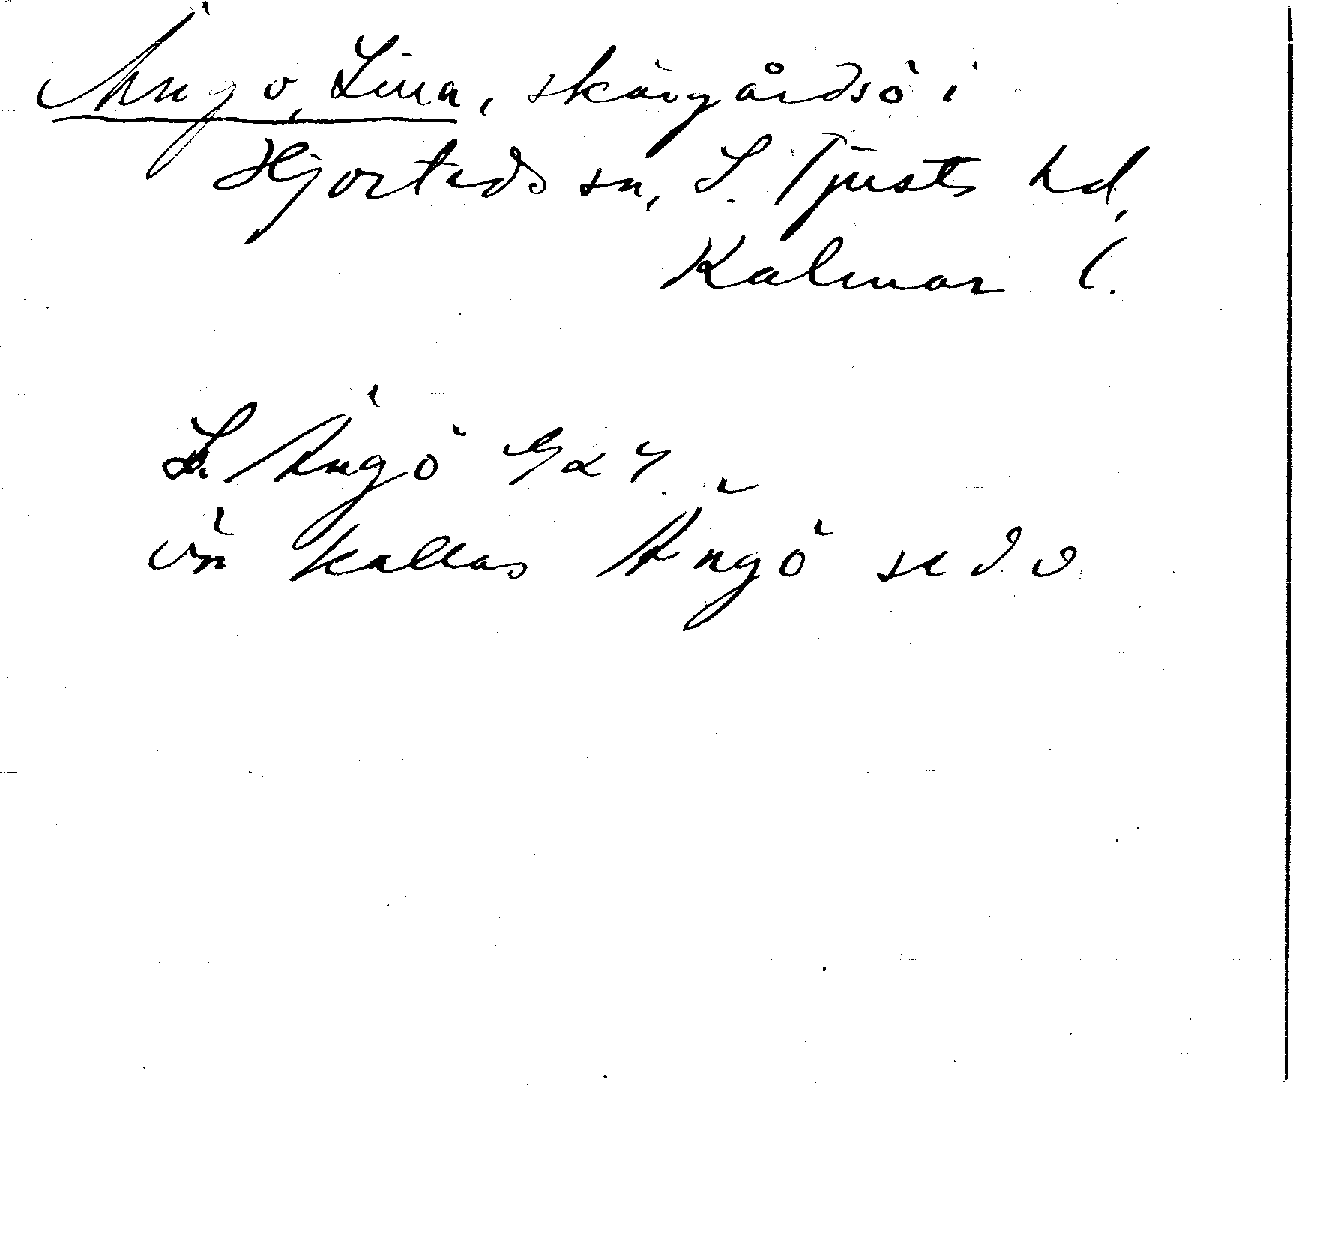 Ängö, Lilla, skärgårdsö i
Hjorteds sn, S. Tjusts hd,
Kalmar l.
L. Ängö GEK
ön kallas Ängö se d o